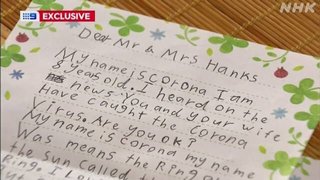 9 EXCLUSIVE
NHK
Dear Mr & Mrs Hanks
My name is corona I am
8 years old. I heard on the
news you and your wife
Have caught the corona
Virus. Are you OK?
My name is corona my name
Was means the Ring or
the sun called the
Ring. I